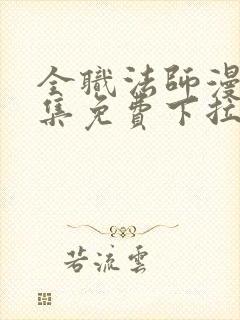 全職法師漫
集免費下拉
若流雲